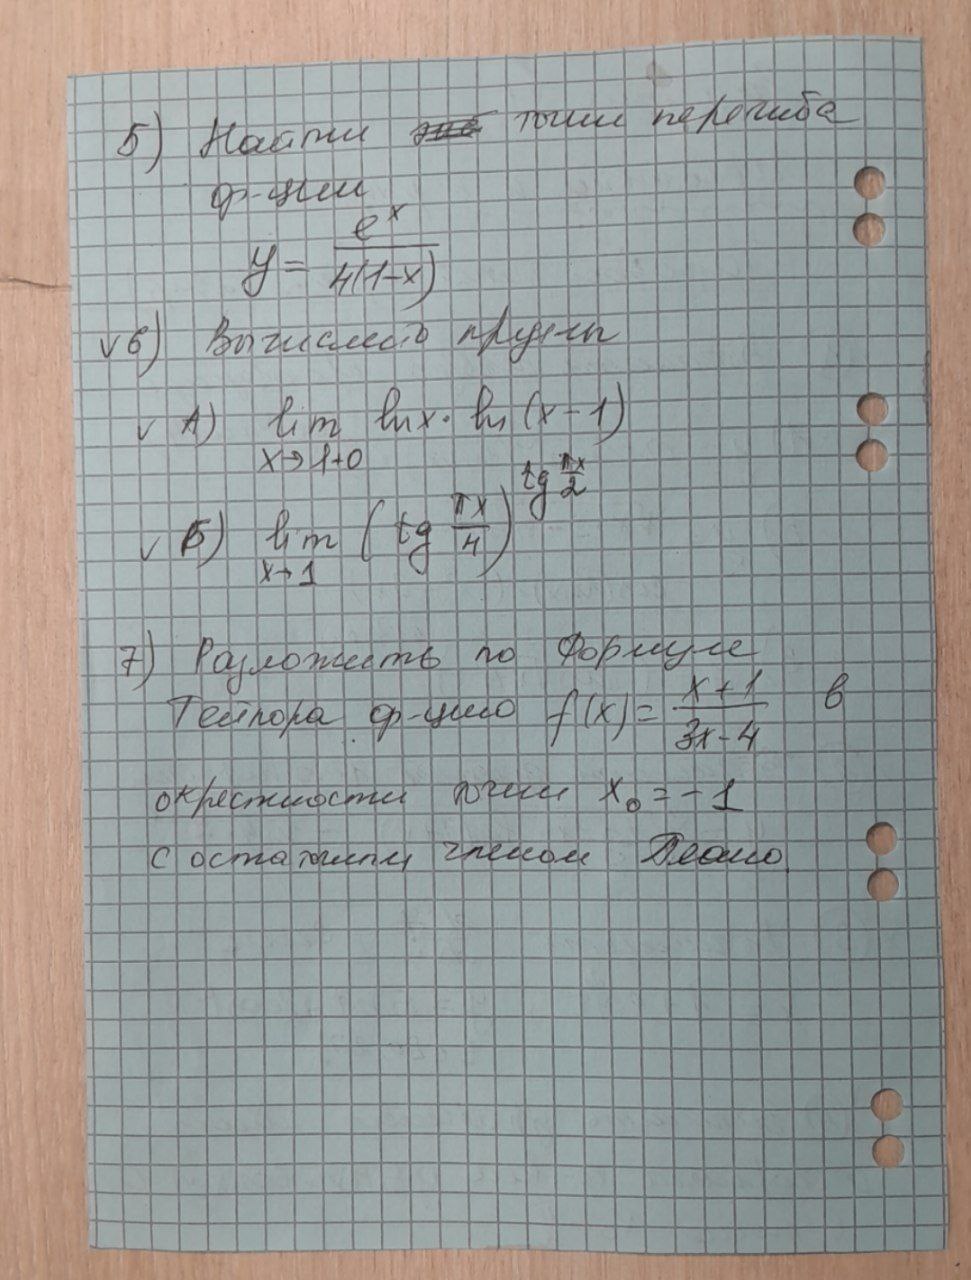 5) Найти точки перегиба
ф-ции
y = e^x / 4(1-x)
v 6) Вычислить пределы
v А) lim x→1+0 ln x · ln (x-1)
v Б) lim x→1 (tg πx/4)^tg πx/2
7) Разложить по Формуле
Тейлора ф-цию f(x) = x+1 / 3x-4 в
окрестности точки x₀ = -1
с остаточным членом Пеано